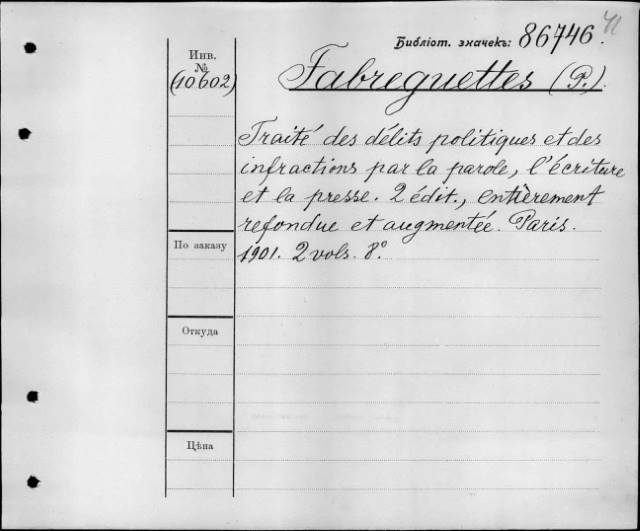 41
Библіот. значекъ: 86746.
Инв.
№
(10602)
Fabreguettes (P.).
Traité des délits politiques et des
infractions par la parole, l'écriture
et la presse. 2 édit., entièrement
refondue et augmentée. Paris.
1901. 2 vols. 8°.
По заказу
Откуда
Цѣна